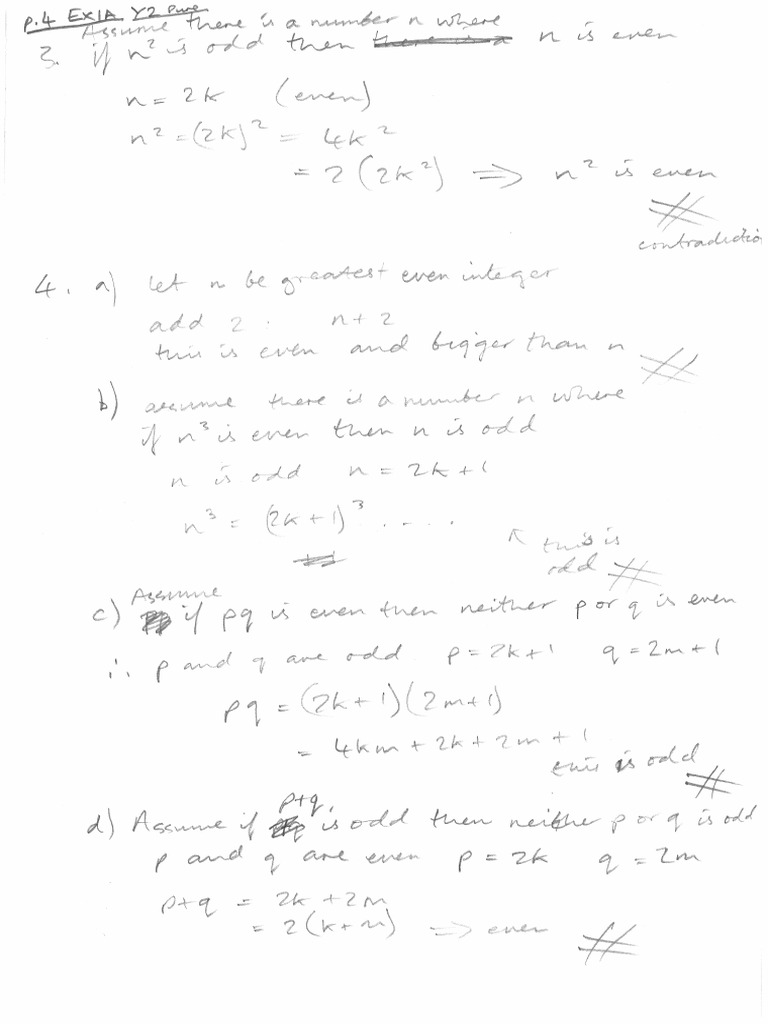 p.4 EX1A Y2 Pure
Assume there is a number n where
3. if n² is odd then there is a n is even
n = 2k (even)
n² = (2k)² = 4k²
= 2(2k²) ⇒ n² is even
contradiction
4. a) let n be greatest even integer
add 2. n+2
this is even and bigger than n
b) assume there is a number n where
if n³ is even then n is odd
n is odd n = 2k+1
n³ = (2k+1)³ .....
↖ this is
odd
Assume
c) if pq is even then neither p or q is even
∴ p and q are odd p = 2k+1 q = 2m+1
pq = (2k+1)(2m+1)
= 4km + 2k + 2m + 1
this is odd
p+q
d) Assume if is odd then neither p or q is odd
p and q are even p = 2k q = 2m
p+q = 2k + 2m
= 2(k+m) ⇒ even